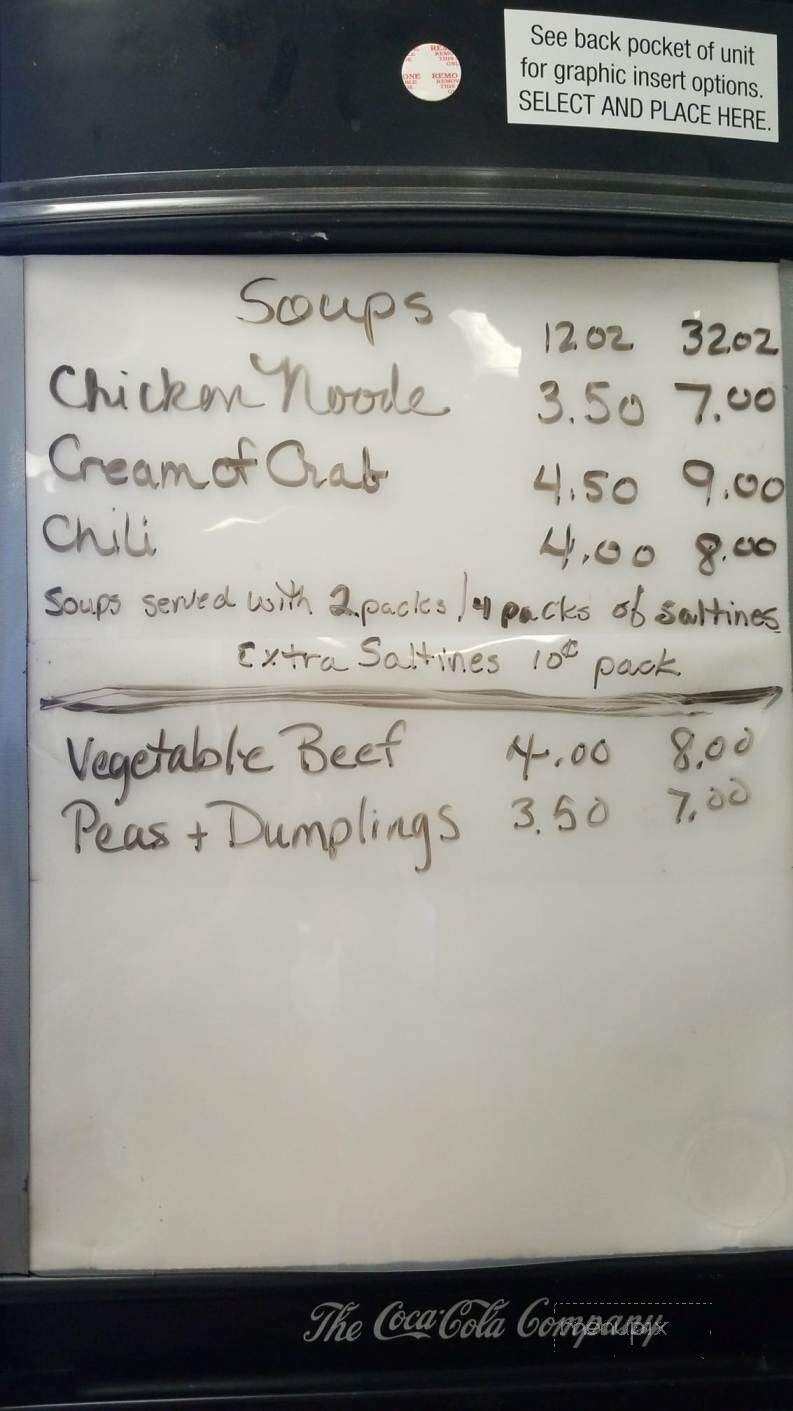 See back pocket of unit
for graphic insert options.
SELECT AND PLACE HERE.
Soups
12oz 32oz
Chicken Noode 3.50 7.00
Cream of Crab 4.50 9.00
Chili 4.00 8.00
Soups served with 2 packs / 4 packs of saltines
Extra Saltines 10¢ pack
Vegetable Beef 4.00 8.00
Peas + Dumplings 3.50 7.00
The Coca-Cola Company
menupix